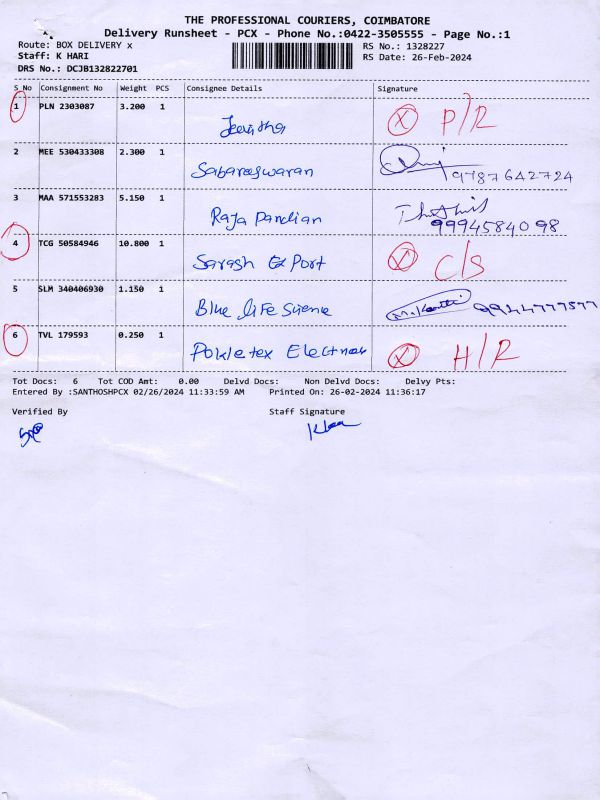 THE PROFESSIONAL COURIERS, COIMBATORE
Delivery Runsheet - PCX - Phone No.:0422-3505555 - Page No.:1
Route: BOX DELIVERY x
RS No.: 1328227
Staff: K HARI
RS Date: 26-Feb-2024
DRS No.: DCJB132822701
S_No Consignment No Weight PCS Consignee Details Signature
1 PLN 2303087 3.200 1 Jeevitha P/R
2 MEE 530433308 2.300 1 Sabareeswaran 9787642724
3 MAA 571553283 5.150 1 Raja Pandian 9994584098
4 TCG 50584946 10.800 1 Sarash Export C/S
5 SLM 340406930 1.150 1 Blue life Science 9944777577
6 TVL 179593 0.250 1 H/R
Tot Docs: 6 Tot COD Amt: 0.00 Delvd Docs: Non Delvd Docs: Delvy Pts:
Entered By :SANTHOSHPCX 02/26/2024 11:33:59 AM Printed On: 26-02-2024 11:36:17
Verified By Staff Signature